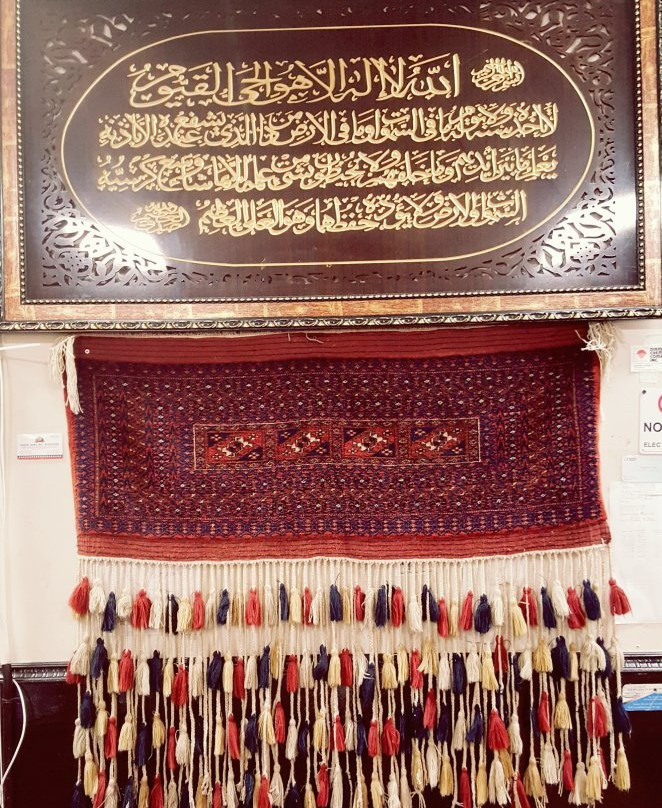 الله لا إله إلا هو الحي القيوم
لا تأخذه سنة ولا نوم له ما في السموات وما في الأرض من ذا الذي يشفع عنده إلا بإذنه
يعلم ما بين أيديهم وما خلفهم ولا يحيطون بشيء من علمه إلا بما شاء وسع كرسيه
السموات والأرض ولا يؤده حفظهما وهو العلي العظيم
NO
ELEC